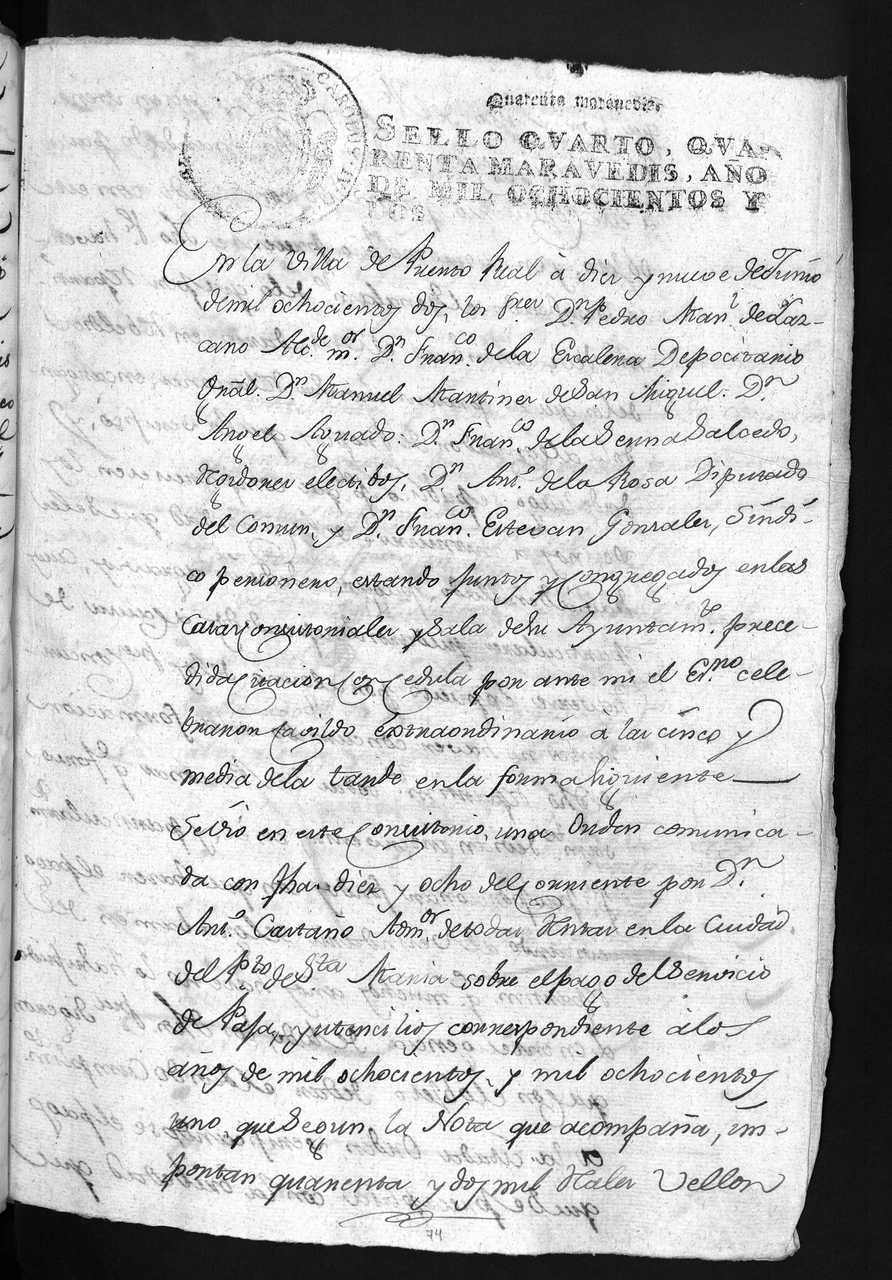 Quarenta maravedis.
CAROLUS IV
SELLO QVARTO, QVA-
RENTA MARAVEDIS, AÑO
DE MIL OCHOCIENTOS Y
DOS
En la Villa de Puerto Real à diez y nueve de Junio
de mil ochocientos dos, los sres. Dn. Pedro Manl. de Laz-
cano Alcde. mor. Dn. Franco. de la Escalena Depocitario
Gnãl. Dn. Manuel Martines de San Miguel: Dn.
Angel Aguado: Dn. Franco. de la Serna Salcedo,
rexidores electibos, Dn. Anto. de la Rosa Diputado
del Comun, y Dn. Franco. Estevan Gonzales, Síndi-
co personero, estando juntos y Congregados en las
Casas Consistoriales y Sala de su Ayuntamto. prece-
dida citacion Con Cedula por ante mi el Esno. cele-
braron Cavildo Extraordinario a las cinco y
media de la tarde en la forma siguiente
Se vio en este Consistorio, una Orden comunica-
da con fha. diez y ocho del Corriente por Dn.
Anto. Cartaño Admor. de todas Rentas en la Ciudad
del Pto. de Sta. Maria sobre el pago del Servicio
de Paja, y utencilios correspondiente à los
años de mil ochocientos, y mil ochocientos
uno, que Segun la Nota que acompaña, im-
portan quarenta y dos mil Reales Vellon
74